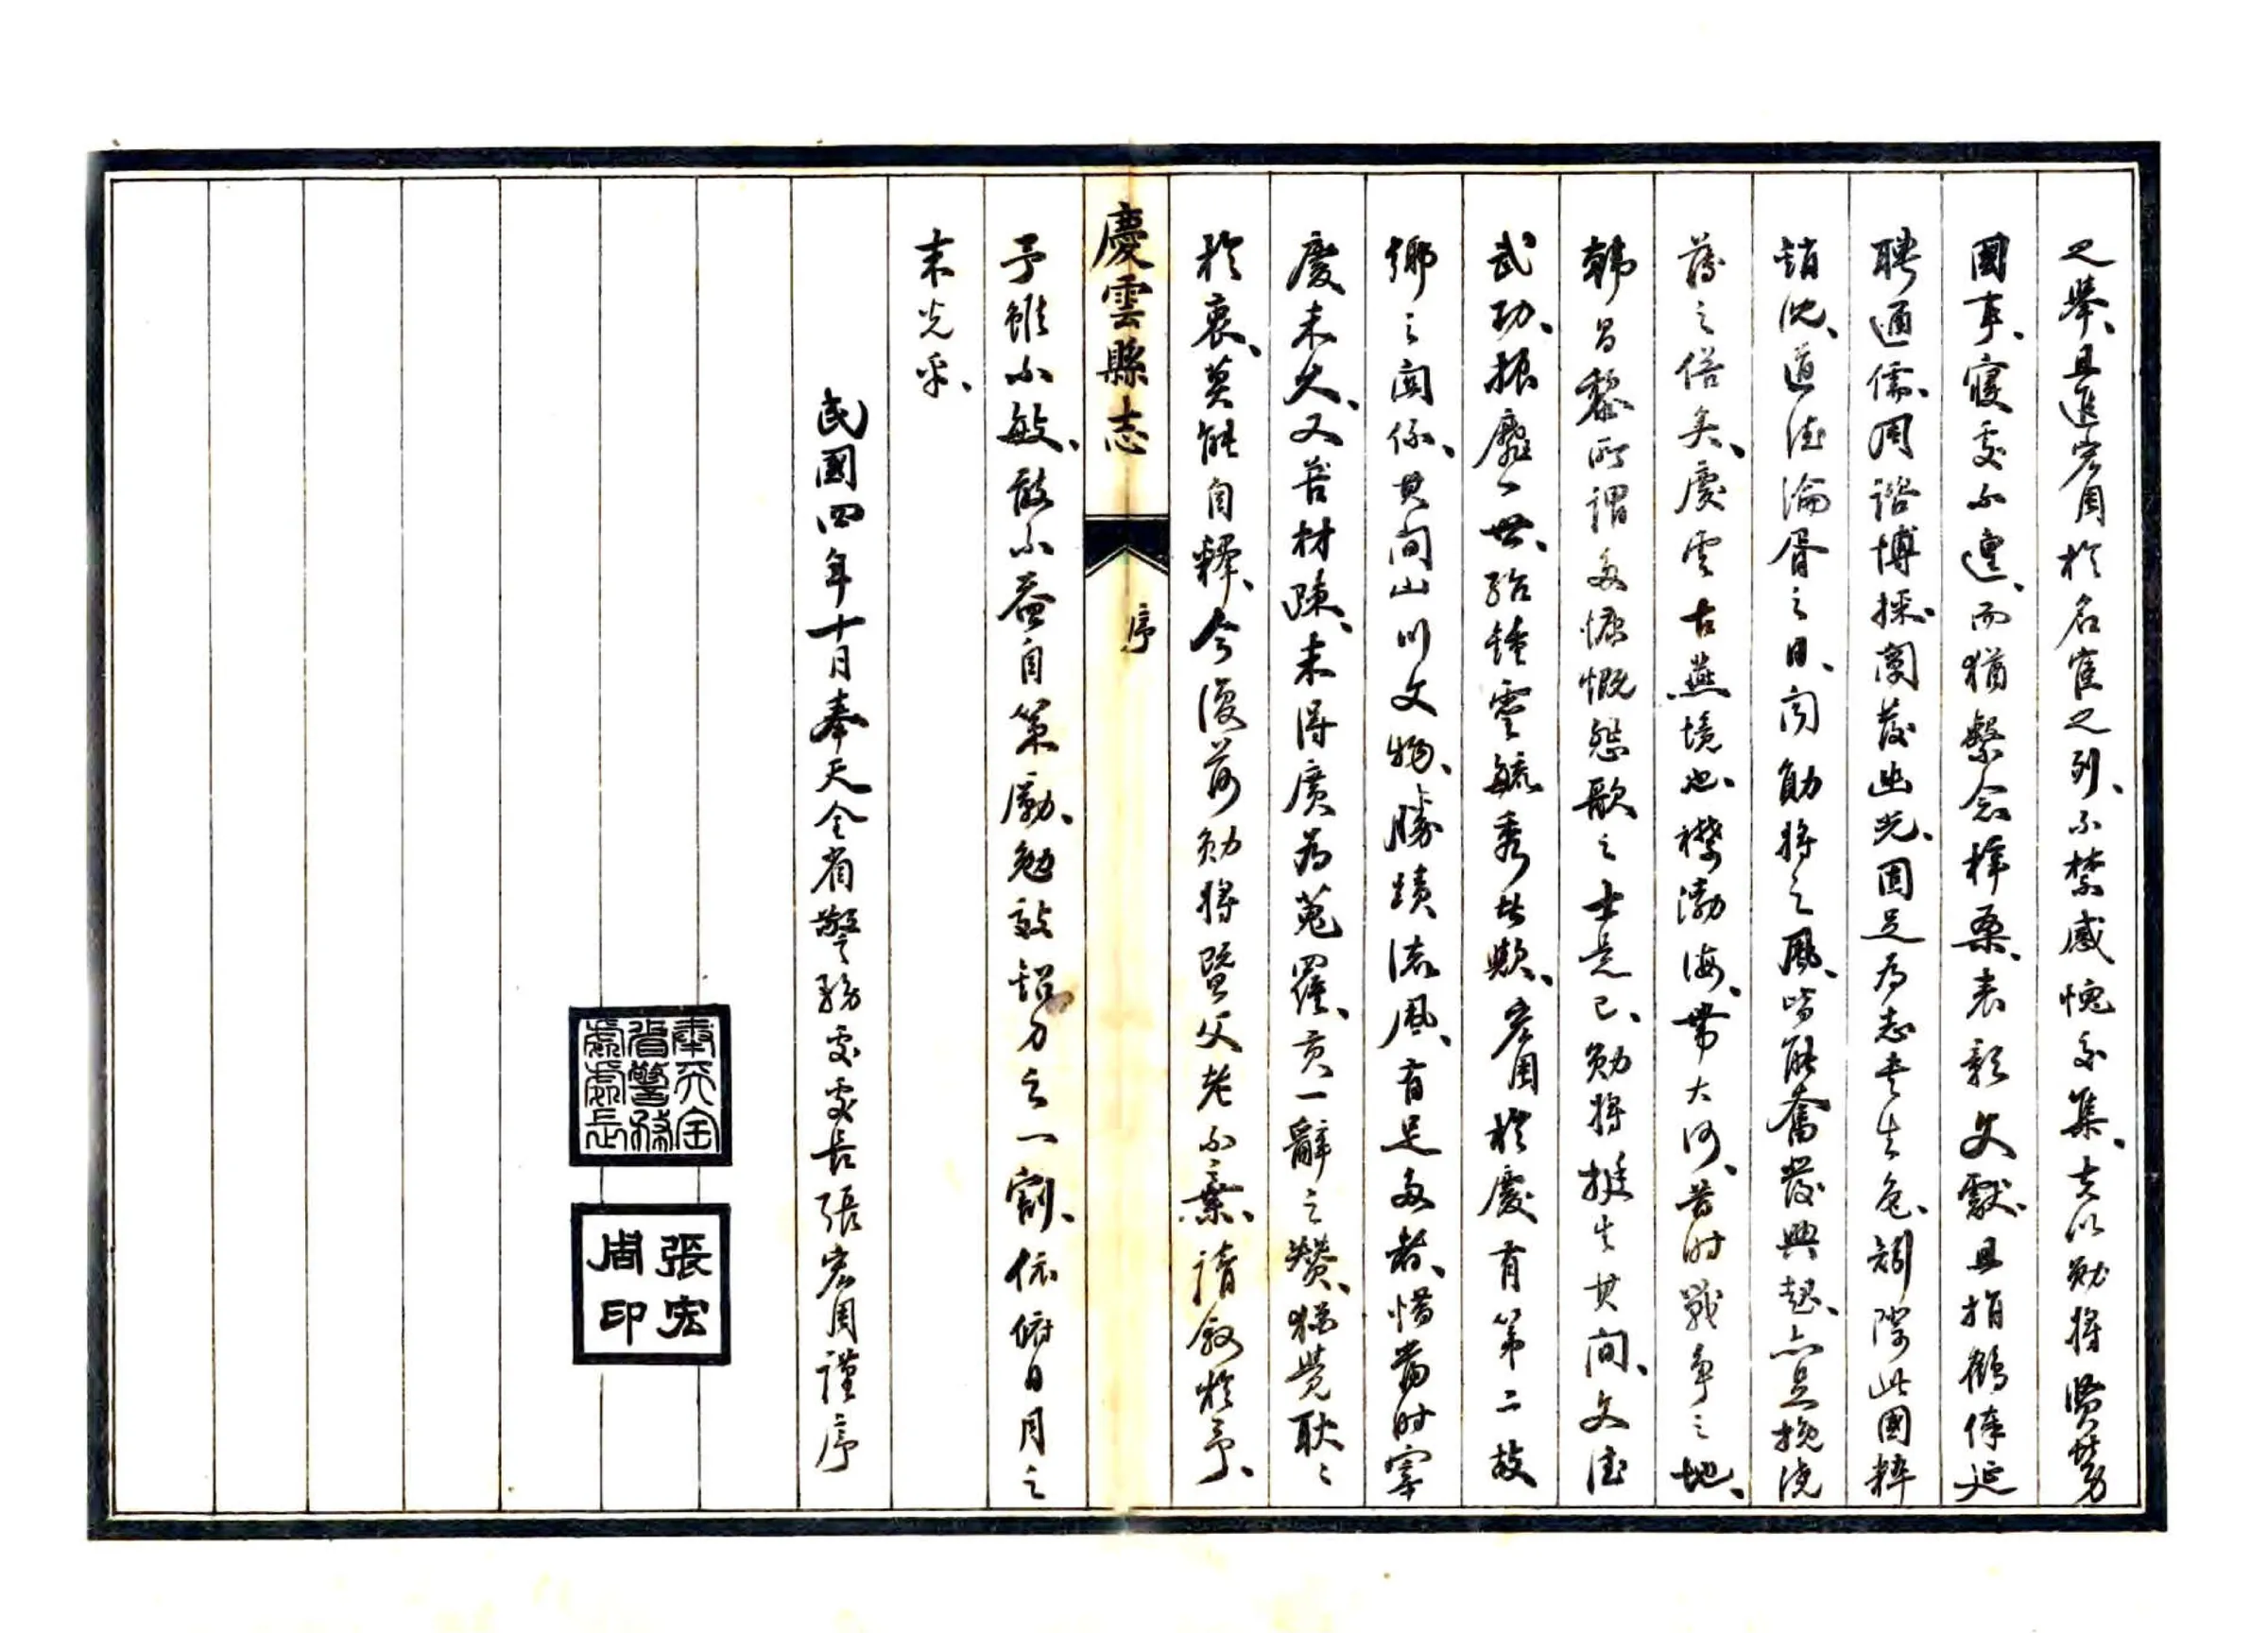 之舉、且進宏周於名宦之列、不禁感愧交集、夫以勛將賢勞
國事、寢處不遑、而猶繫念梓桑、表彰文獻、且捐鶴俸延
聘通儒、周諮博採、闡發幽光、固足為志乘生色、矧際此國粹
銷沈、道德淪胥之日、聞勛將之風、皆能奮發興起、亦足挽澆
薄之俗矣、慶雲古燕境也、襟渤海、帶大河、昔時戰爭之地、
韓昌黎所謂多慷慨悲歌之士是已、勛將挺生其間、文治
武功、振靡一世、殆鍾靈毓秀者歟、宏周於慶有第二故
鄉之關係、其間山川文物、勝蹟流風、有足多者、惜當時宰
慶未久、又苦材疎、未得廣為蒐羅、貢一辭之贊、猶覺耿々
於衷、莫能自釋、今復荷勛將暨父老不棄、請敘於予、
慶雲縣志
序
予雖不敏、敢不益自策勵、勉效鉛刀之一割、依附日月之
末光乎、
民國四年十月奉天全省警務處處長張宏周謹序
奉天全
省警務
處處長
張宏
周印